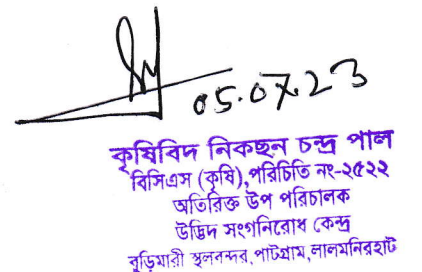 05.07.23
কৃষিবিদ নিকছন চন্দ্র পাল
বিসিএস (কৃষি),পরিচিতি নং-২৫২২
অতিরিক্ত উপ পরিচালক
উদ্ভিদ সংগনিরোধ কেন্দ্র
বুড়িমারী স্থলবন্দর,পাটগ্রাম,লালমনিরহাট